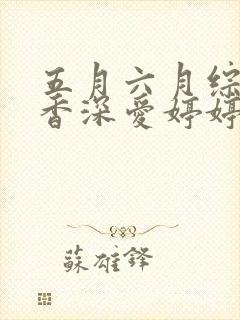 五月六月综
香深爱婷婷
蘇雄鋒